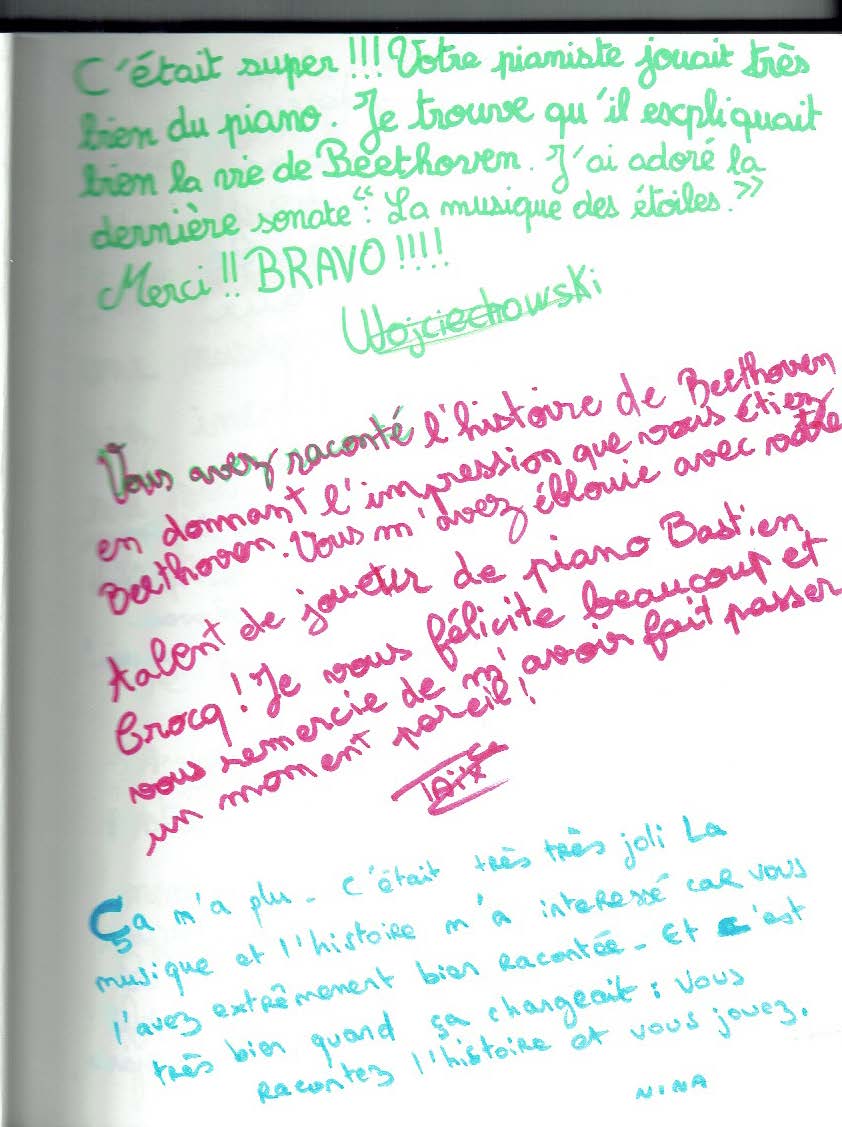 C'était super !!! Votre pianiste jouait très
bien du piano. Je trouve qu'il expliquait
bien la vie de Beethoven. J'ai adoré la
dernière sonate : "La musique des étoiles."
Merci !! BRAVO !!!!
Wojciechowski
Vous avez raconté l'histoire de Beethoven
en donnant l'impression que vous étiez
Beethoven. Vous m'avez éblouie avec votre
talent de joueur de piano Bastien
Crocq ! Je vous félicite beaucoup et
vous remercie de m'avoir fait passer
un moment pareil !
Ça m'a plu - C'était très très joli La
musique et l'histoire m'a interessé car vous
l'avez extrêmement bien racontée - Et c'est
très bien quand ça changeait : vous
racontez l'histoire et vous jouez.
NINA